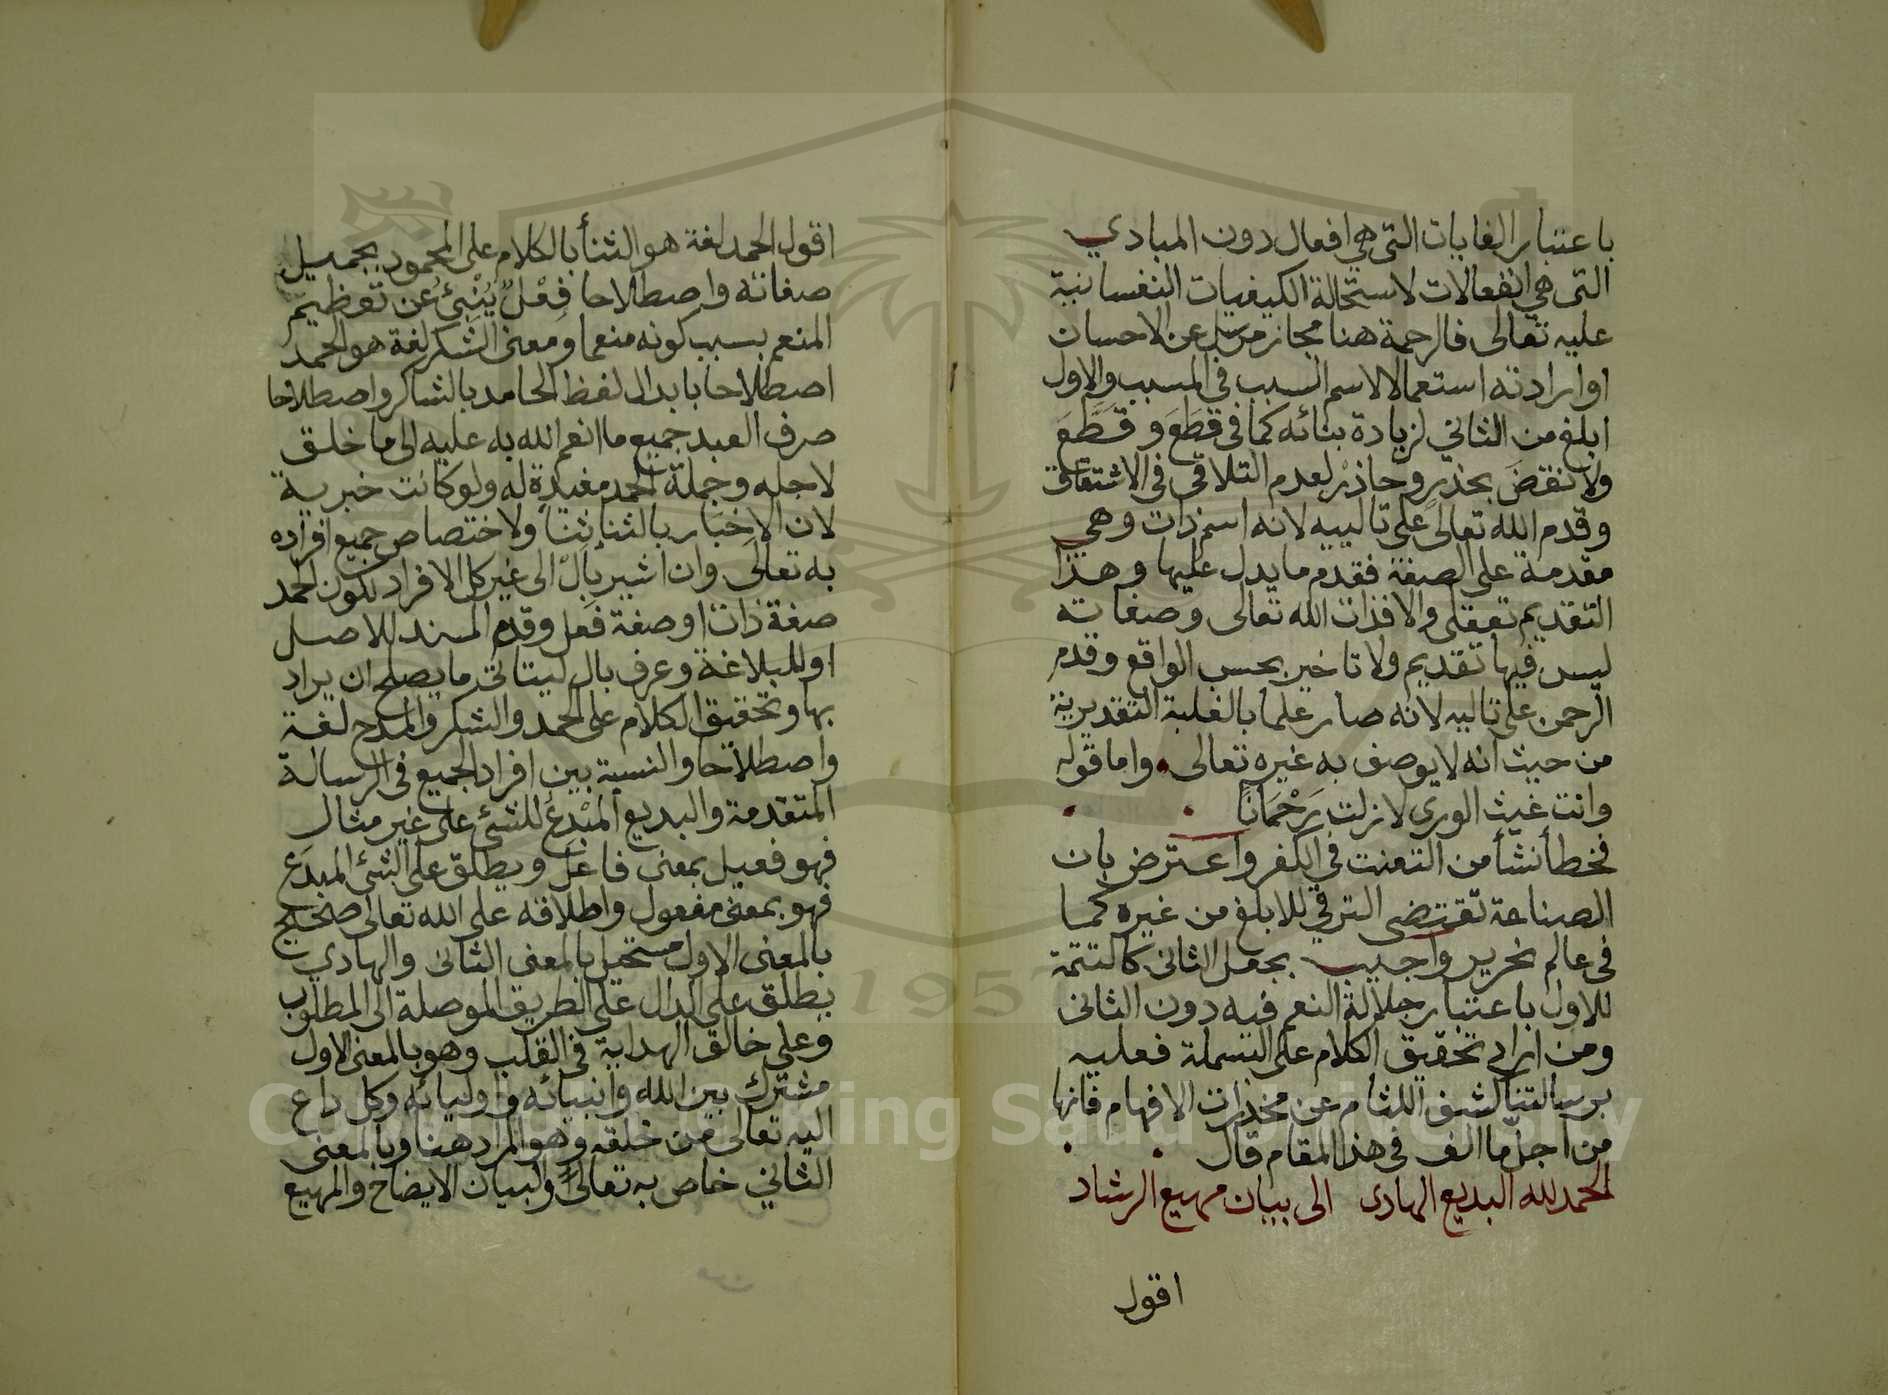 باعتبار الغايات التي هي افعال دون المبادي
التي هي انفعالات لاستحالة الكيفيات النفسانية
عليه تعالى فالرحمة هنا مجاز مرسل عن الاحسان
او ارادته استعمالا لاسم السبب في المسبب والاول
ابلغ من الثاني لزيادة بنائه كما في قَطَعَ وقَطَّعَ
ولا نقضَ بحذرٍ وحاذرٍ لعدم التلاقي في الاشتقاق
وقدم الله تعالى على تالييه لانه اسم ذات وهي
مقدمة على الصفة فقدم ما يدل عليها وهذا
التقديم تعقلى والا فذات الله تعالى وصفاته
ليس فيها تقديم ولا تاخير بحسب الواقع وقدم
الرحمن على تاليه لانه صار علما بالغلبة التقديرية
من حيث انه لا يوصف به غيره تعالى واما قوله
وانت غيث الورى لا زلت رَحْمَانًا
فخطأ نشأ من التعنت في الكفر واعترض بان
الصناعة تقتضى الترقي للابلغ من غيره كما
في عالم نحرير واجيب بجعل الثانى كالتتمة
للاول باعتبار جلالة النعم فيه دون الثانى
ومن اراد تحقيق الكلام على البسملة فعليه
برسالتنا كشف اللثام عن مخدرات الافهام فانها
من اجلّ ما الف في هذا المقام قال
الحمد لله البديع الهادى الى بيان مهيع الرشاد
اقول
اقول الحمد لغة هو الثنأ بالكلام على المحمود بجميل
صفاته واصطلاحا فِعْلٌ يُنْبِئُ عن تعظيم
المنعم بسبب كونه منعما ومعنى الشكر لغة هو الحمد
اصطلاحا بابدال لفظ الحامد بالشاكر واصطلاحا
صرف العبد جميع ما انعم الله به عليه الى ما خلق
لاجله وجملة الحمد مفيدة له ولو كانت خبرية
لان الاخبار بالثنا ثنا ولاختصاص جميع افراده
به تعالى وان اشير بأل الى غير كل الافراد لكون الحمد
صفة ذات او صفة فعل وقدم المسند للاصل
او للبلاغة وعرف بال ليتاتى ما يصلح ان يراد
بها وتحقيق الكلام على الحمد والشكر والمدح لغة
واصطلاحا والنسبة بين افراد الجميع في الرسالة
المتقدمة والبديع المُبْدِعُ للشئ على غير مثال
فهو فعيل بمعنى فاعل ويطلق على الشئ المبدَع
فهو بمعنى مفعول واطلاقه على الله تعالى صحيح
بالمعنى الاول مستحيل بالمعنى الثانى والهادي
يطلق على الدال على الطريق الموصلة الى المطلوب
وعلى خالق الهداية في القلب وهو بالمعنى الاول
مشترك بين الله وانبيائه واوليائه وكل داع
اليه تعالى من خلقه وهو المراد هنا وبالمعنى
الثاني خاص به تعالى والبيان الايضاح والمهيع
Copyright © King Saud University
1957